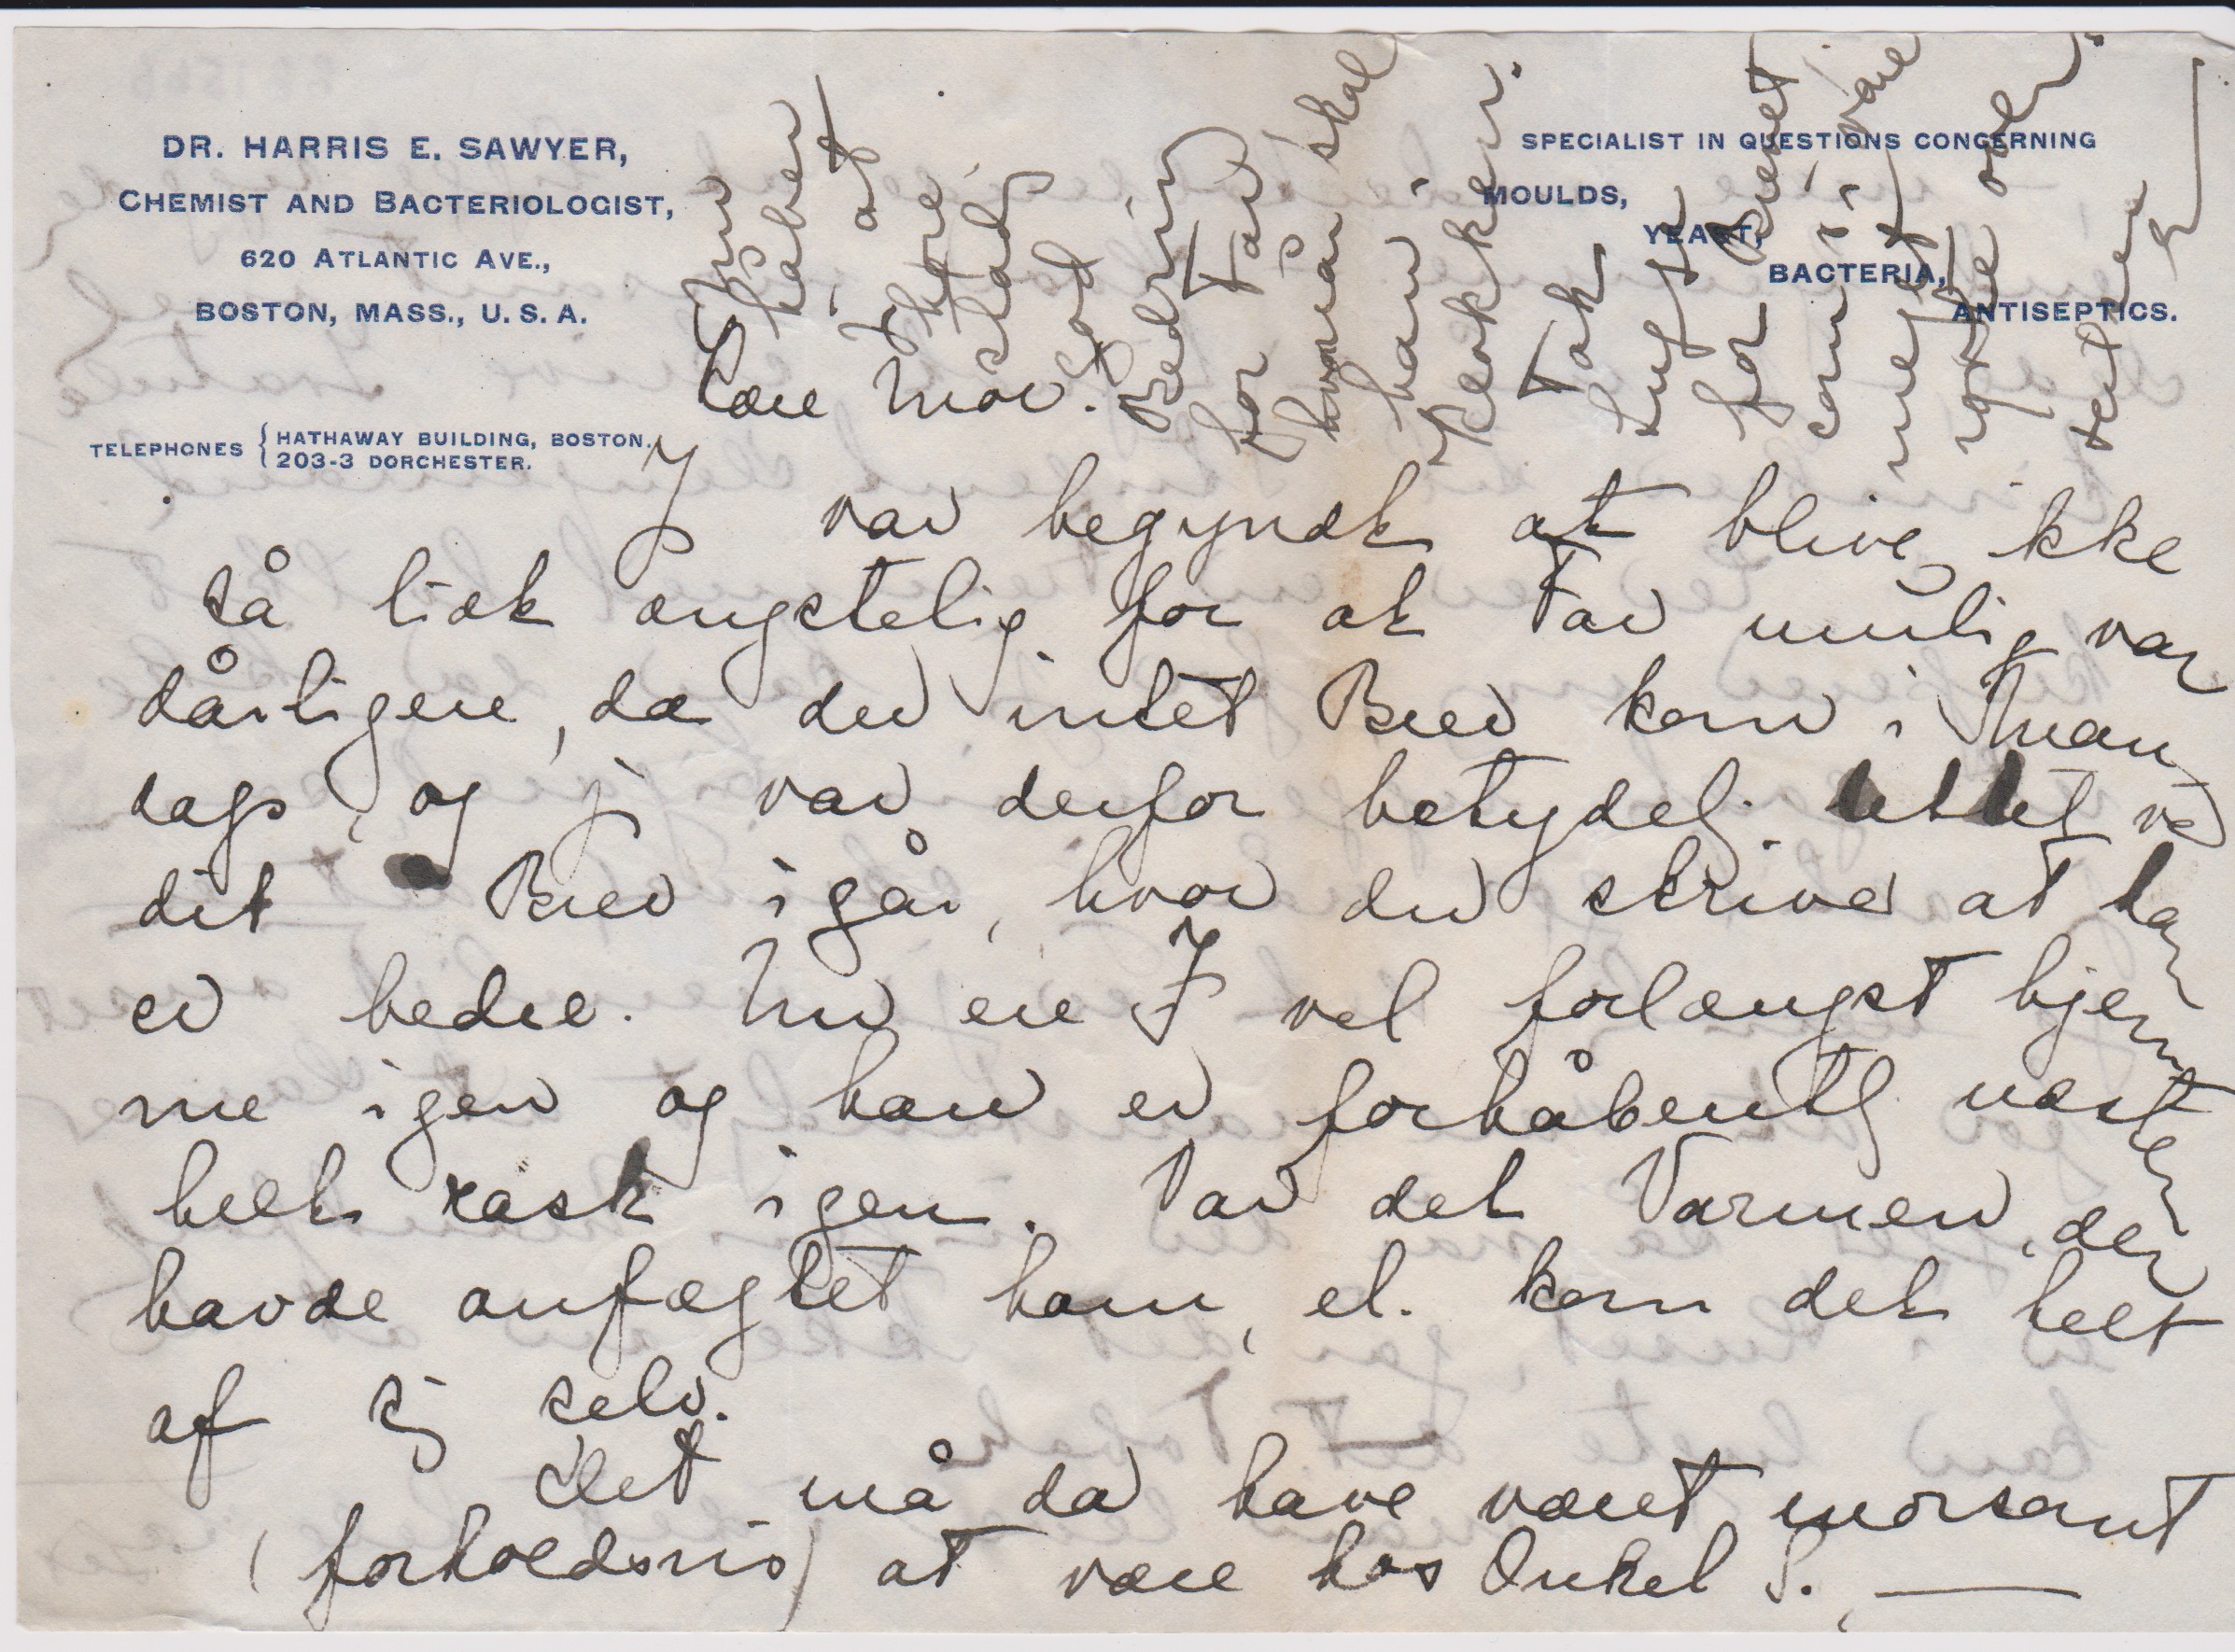 DR. HARRIS E. SAWYER,
CHEMIST AND BACTERIOLOGIST,
620 ATLANTIC AVE.,
BOSTON, MASS., U. S. A.
TELEPHONES { HATHAWAY BUILDING, BOSTON.
203-3 DORCHESTER.
SPECIALIST IN QUESTIONS CONCERNING
MOULDS,
YEAST,
BACTERIA,
ANTISEPTICS.
Kære Mor.
J var begyndt at blive ikke
så lidt ængstelig for at Far mulig var
dårligere, da der intet Brev kom i Man
dags, og j var derfor betydelig lettet ve
dit Brev igår, hvor du skriver at han
er bedre. Nu ere I vel forlængst hjem
me igen og han er forhåbentlg næsten
helt rask igen. Var det Varmen, der
havde anfægtet ham, el. kom det helt
af sig selv.
Det må da have været morsomt
(forholdsvis) at være hos Onkel S.,
Nu
håber
j at
høre
stadig
god
Bedring
for Far
hvornår skal
han i
Klokken.
Tak
for Brevet
som i var
meget
over